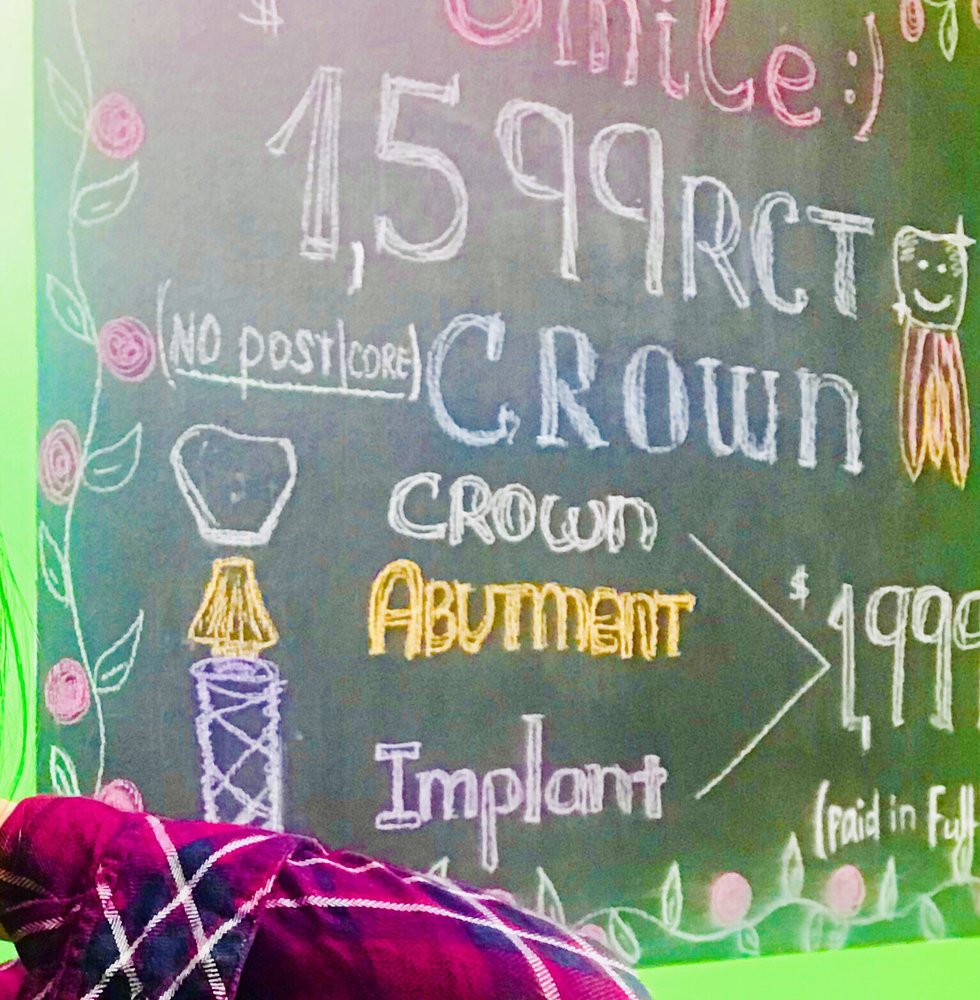 Smile :)
$
1,599 RCT
(NO post/CORE) CROWN
CROWN
ABUTMENT
$1,999
Implant
(paid in Full